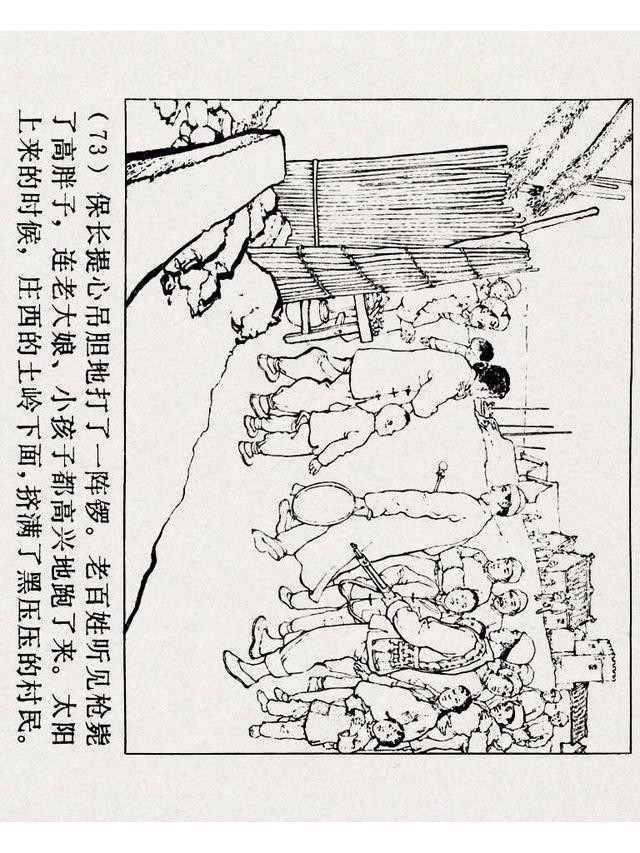 （73）保长提心吊胆地打了一阵锣。老百姓听见枪毙
了高胖子，连老大娘、小孩子都高兴地跑了来。太阳
上来的时候，庄西的土岭下面，挤满了黑压压的村民。